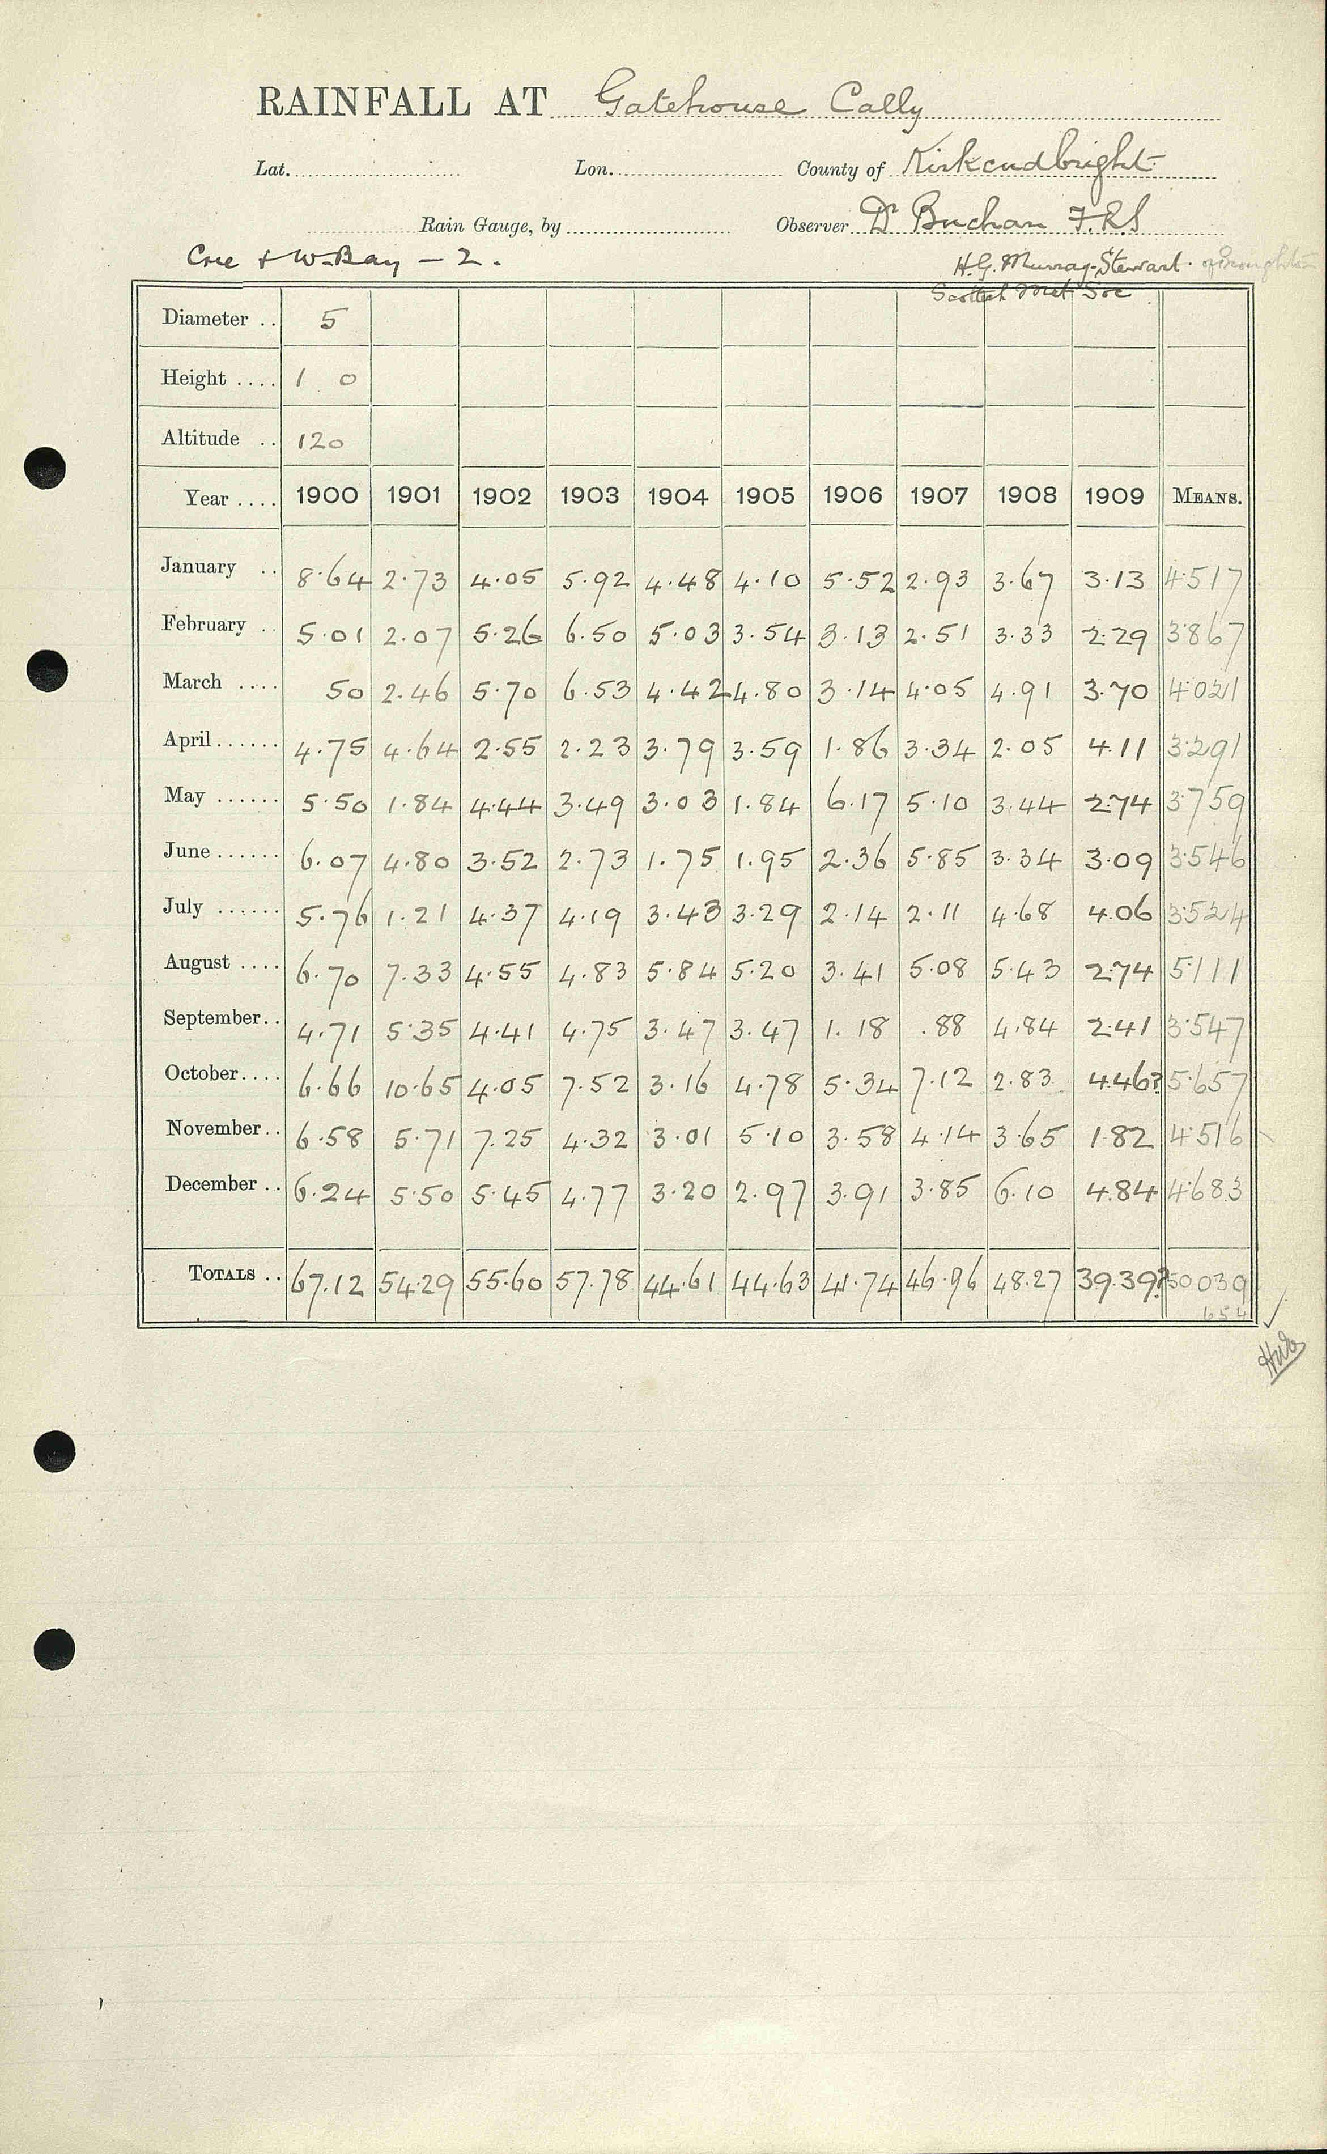 RAINFALL AT Gatehouse Cally
Lat. Lon. County of Kirkcudbright
Rain Gauge, by Observer Dr Buchan F.R.S
Cree & W. Bay - 2. H.G. Murray-Stewart.
Scottish Met Soc
Diameter .. 5
Height .... 1 0
Altitude .. 120
Year .... 1900 1901 1902 1903 1904 1905 1906 1907 1908 1909 MEANS.
January .. 8.64 2.73 4.05 5.92 4.48 4.10 5.52 2.93 3.67 3.13 4.517
February .. 5.01 2.07 5.26 6.50 5.03 3.54 3.13 2.51 3.33 2.29 3.867
March .... 50 2.46 5.70 6.53 4.42 4.80 3.14 4.05 4.91 3.70 4.021
April ...... 4.75 4.64 2.55 2.23 3.79 3.59 1.86 3.34 2.05 4.11 3.291
May ...... 5.50 1.84 4.44 3.49 3.03 1.84 6.17 5.10 3.44 2.74 3.759
June ...... 6.07 4.80 3.52 2.73 1.75 1.95 2.36 5.85 3.34 3.09 3.546
July ...... 5.76 1.21 4.37 4.19 3.43 3.29 2.14 2.11 4.68 4.06 3.524
August .... 6.70 7.33 4.55 4.83 5.84 5.20 3.41 5.08 5.43 2.74 5.111
September .. 4.71 5.35 4.41 4.75 3.47 3.47 1.18 .88 4.84 2.41 3.547
October .... 6.66 10.65 4.05 7.52 3.16 4.78 5.34 7.12 2.83 4.46? 5.657
November .. 6.58 5.71 7.25 4.32 3.01 5.10 3.58 4.14 3.65 1.82 4.516
December .. 6.24 5.50 5.45 4.77 3.20 2.97 3.91 3.85 6.10 4.84 4.683
TOTALS .. 67.12 54.29 55.60 57.78 44.61 44.63 41.74 46.96 48.27 39.39? 50 039